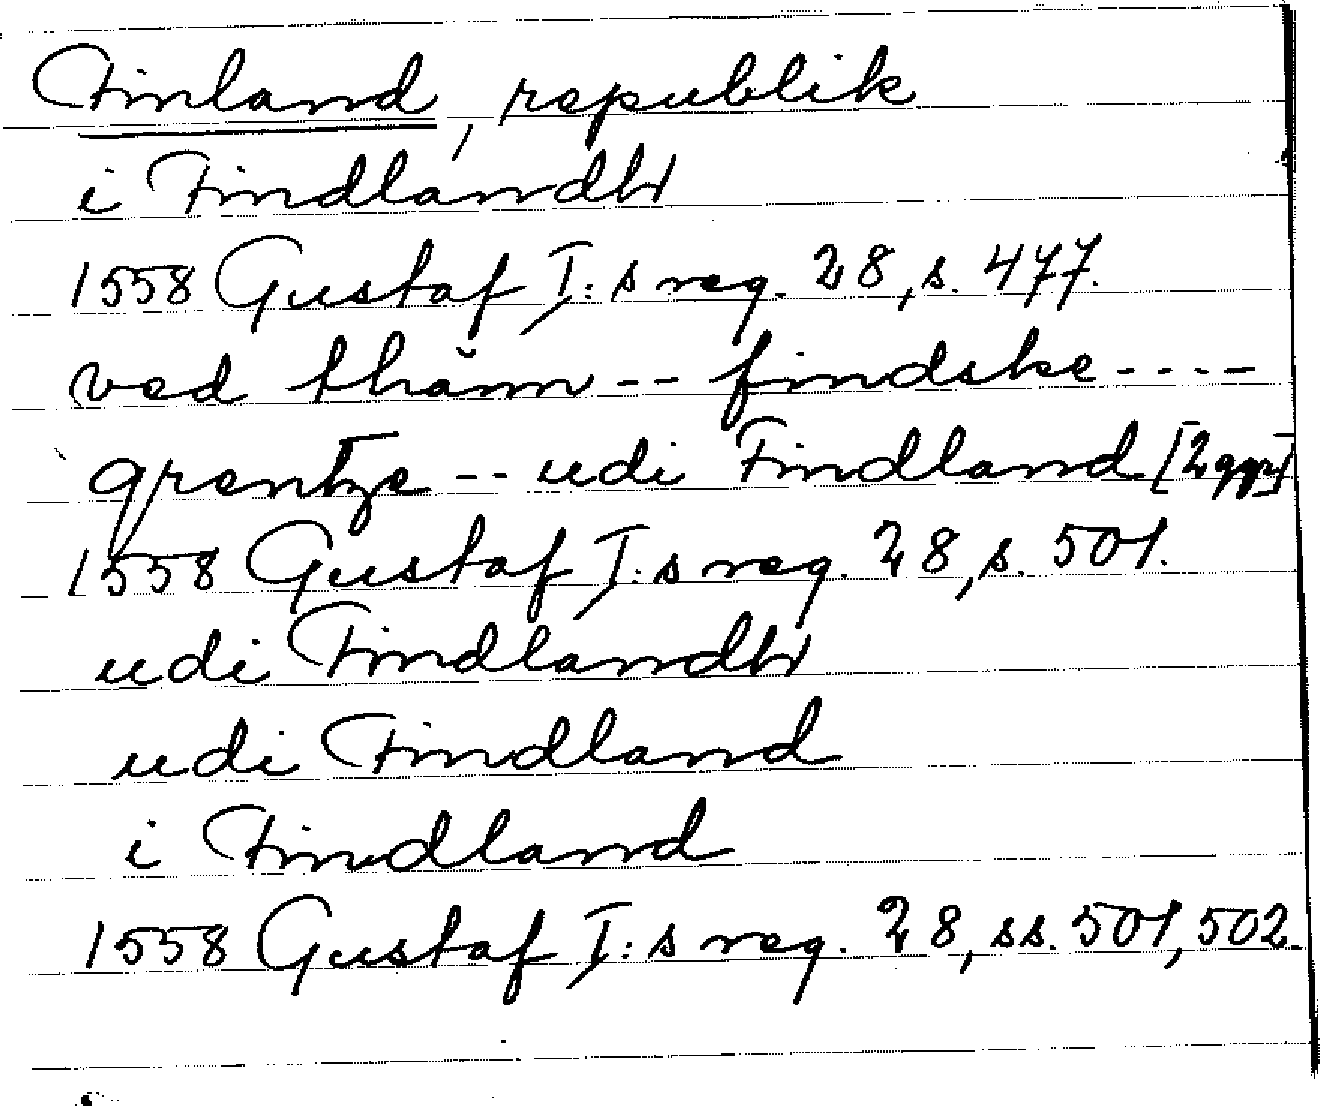 Finland, republik
i Findlandh
1558 Gustaf I:s reg. 28, s. 477.
ved thäm -- findske ----
grentze -- udi Findland [2 ggr]
1558 Gustaf I:s reg. 28, s. 501.
udi Findlandh
udi Findland
i Findland
1558 Gustaf I:s reg. 28, ss. 501, 502